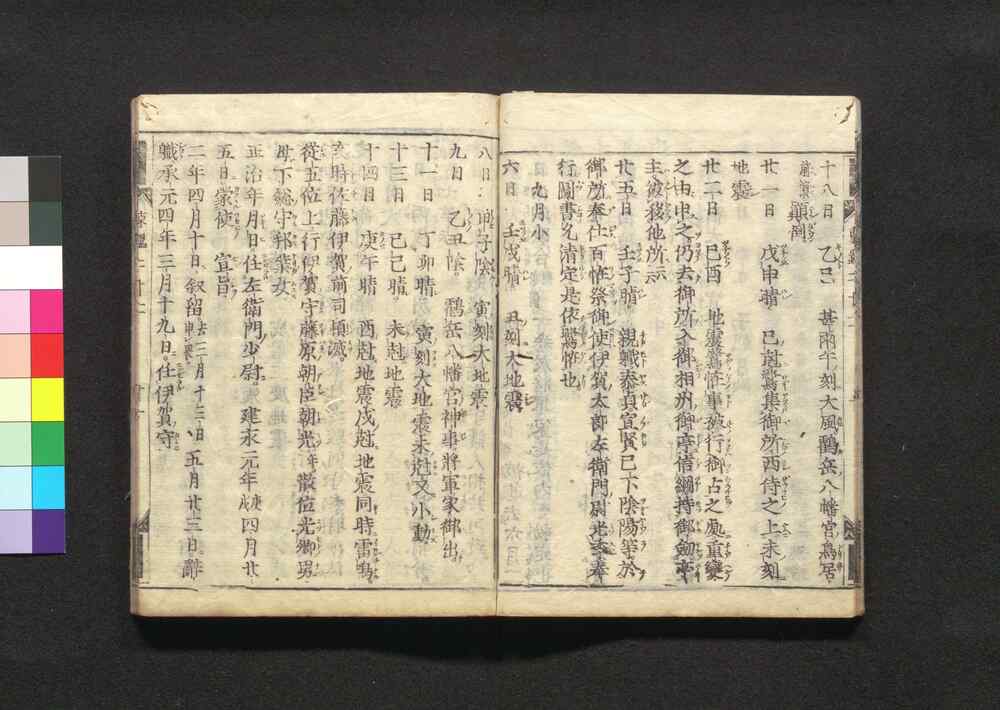 十八日　乙巳　甚雨午刻大風鶴岳八幡宮鳥居
顛倒
廿一日　戊申晴　巳尅鷺集御所西侍之上未刻
地震
廿二日　己酉　地震鷺怪事被行御占之處重變
之由申之仍去御所入御相州御亭信綱持御劔亭
主被移他所云云
廿五日　壬子晴　親軄泰貞宣賢已下陰陽等於
御所奉仕百怪祭御使伊賀太郎左衛門尉光奉
行圖書允清定是依鷺怪也
九月小
六日　壬戌晴　丑刻大地震
八日　甲子陰　寅刻大地震
九日　乙丑陰　鶴岳八幡宮神事將軍家御出
十一日　丁卯晴　寅刻大地震未尅又小動
十三日　己巳晴　未尅地震
十四日　庚午晴　酉尅地震戌尅地震同時雷鳴
亥時佐藤伊賀前司頓滅
從五位上行伊賀守藤原朝臣朝光年散位光郷男
母下総守邦業女
正治年月日任左衛門少尉建永元年四月廿
五日蒙使　宣旨
二年四月十日叙留去三月十三日五月廿三日辭
軄承元四年三月十九日任伊賀守